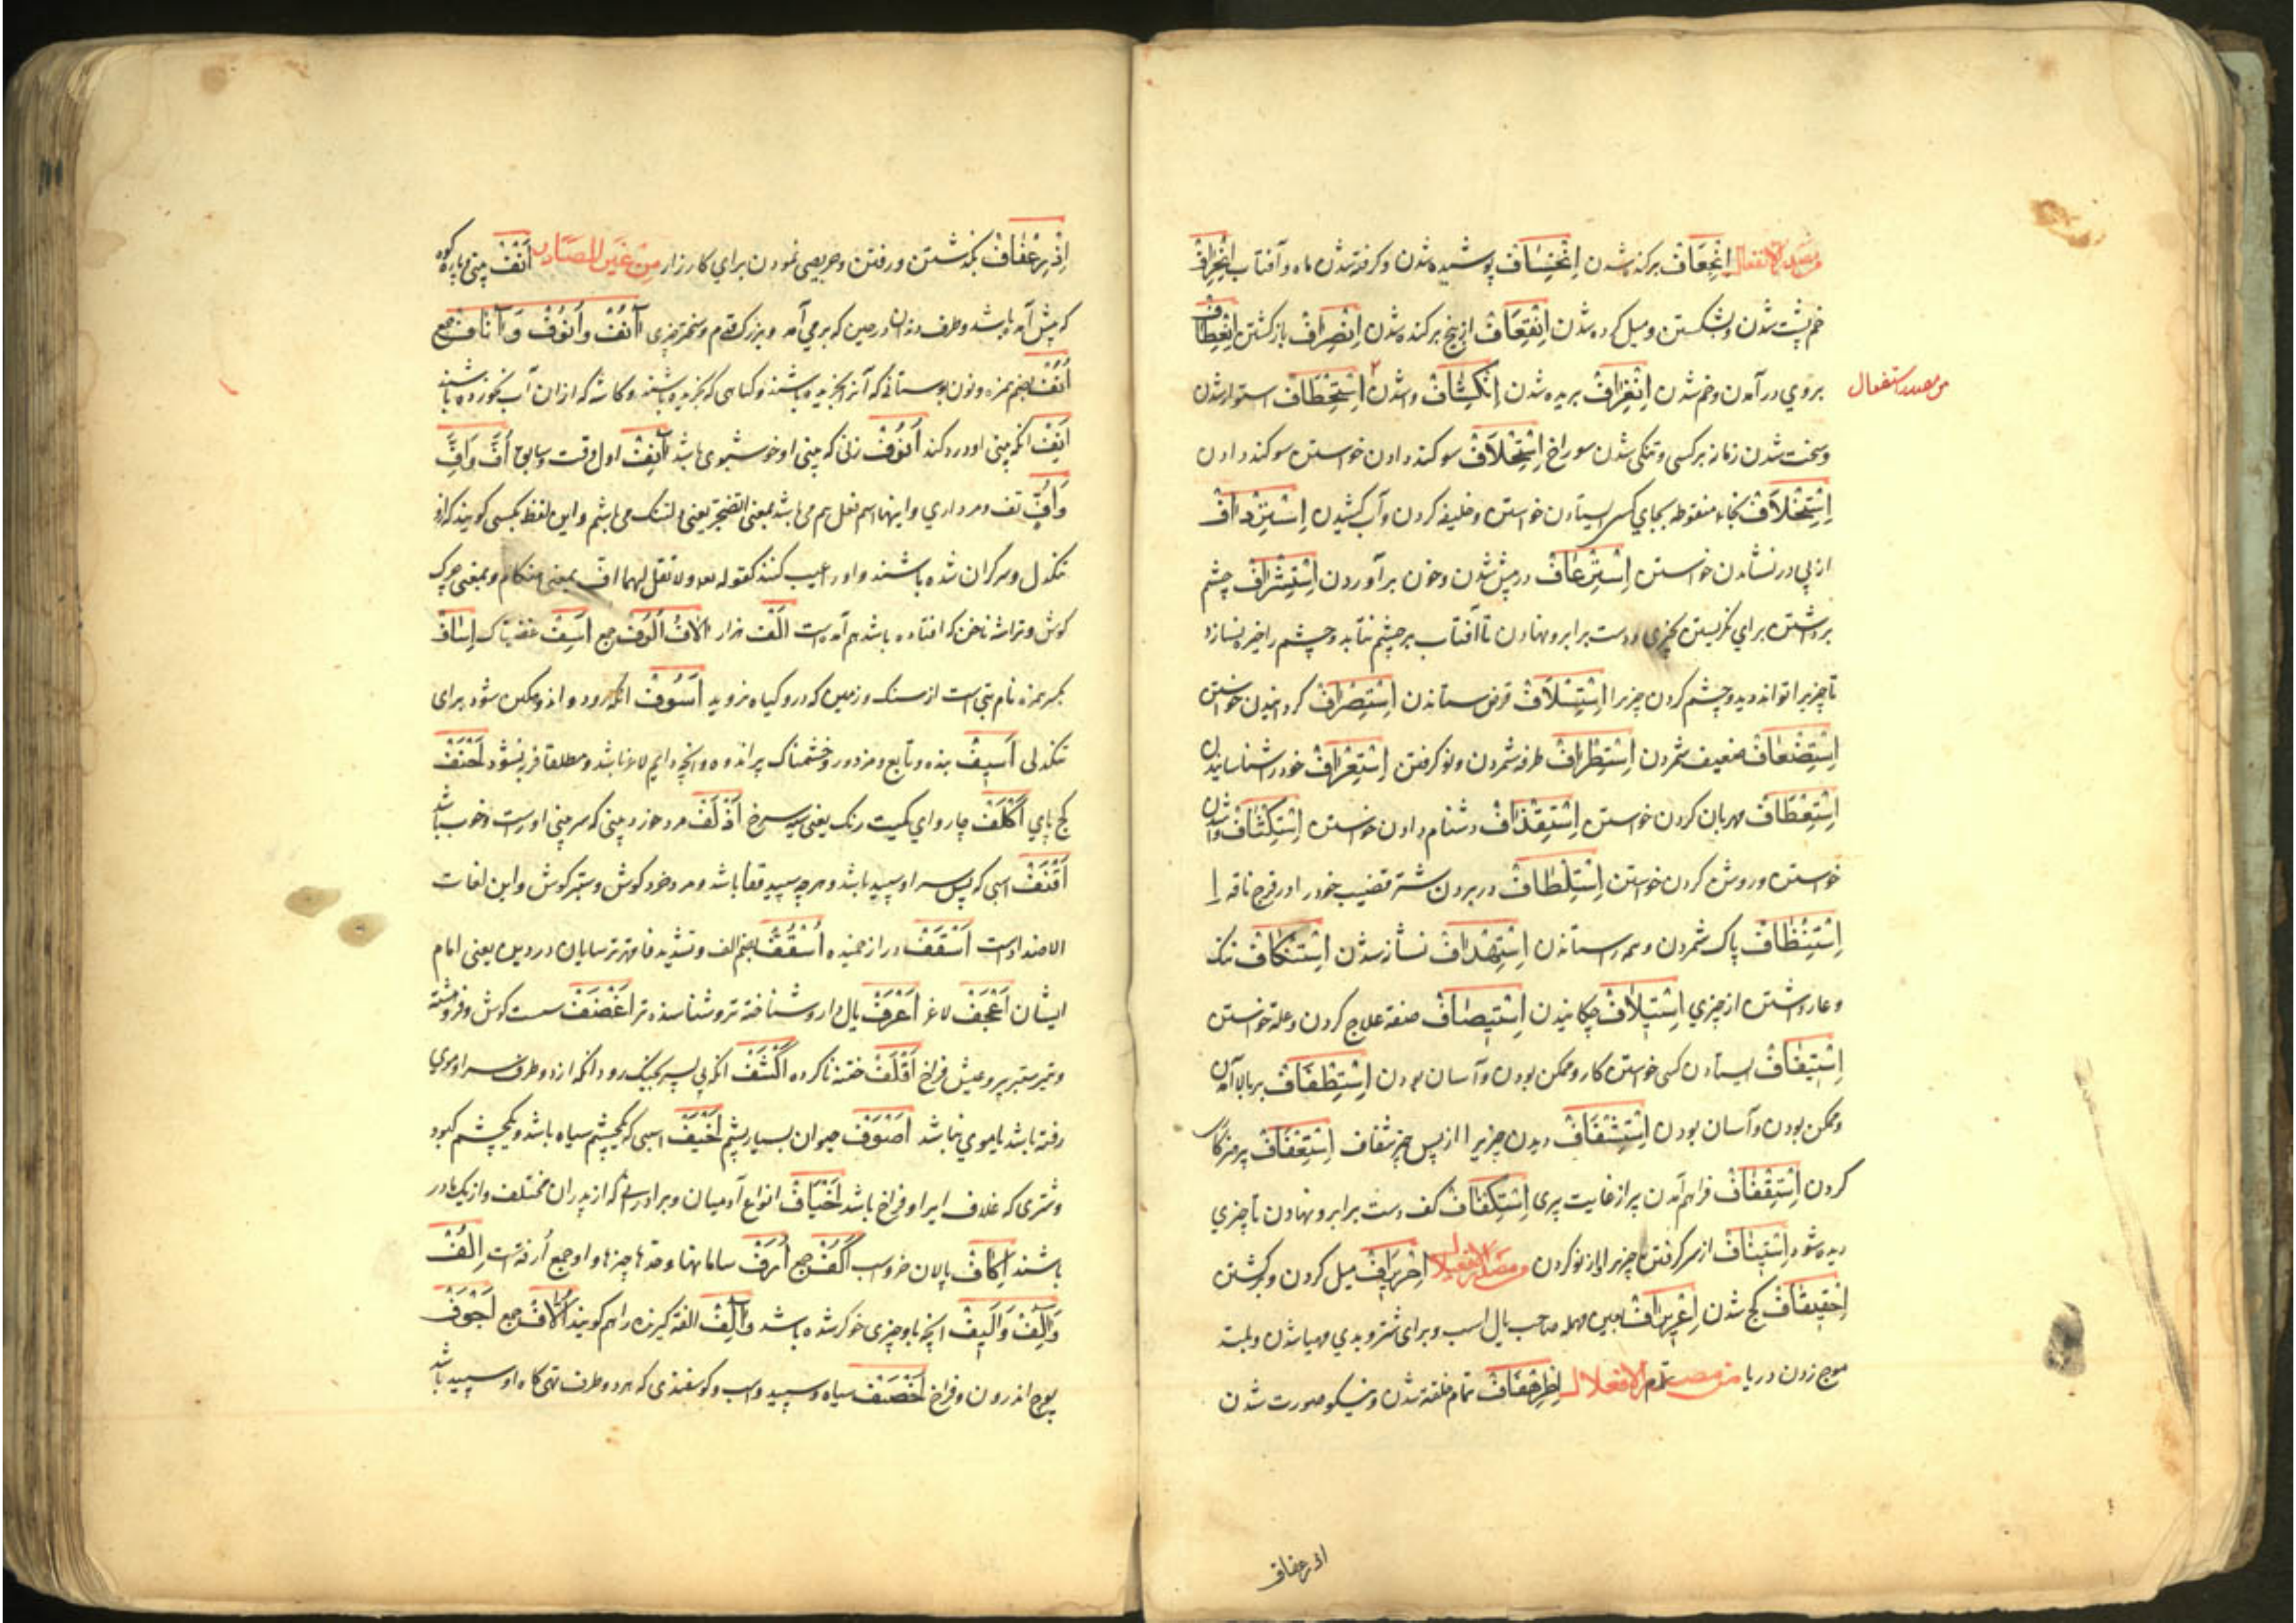 من مصدر الانفعال اِنْجِعَافْ برکنده شدن اِنْخِسَافْ پوشیده شدن و کرفته شدن ماه و آفتاب اِنْحِرَافْ
خم پشت شدن و بشکستن و میل کرده شدن اِنْقِعَافْ از بیخ برکنده شدن اِنْصِرَافْ بازکشتن اِنْعِطَافْ
بروی درآمدن و خم شدن اِنْغِرَافْ بریده شدن اِنْکِشَافْ واشدن اِسْتِحْطَافْ استوار شدن
من مصدر استفعال
و سخت شدن زمانه برکسی و تنکی شدن سوراخ اِسْتِحْلَافْ سوکند دادن خواستن سوکند دادن
اِسْتِخْلَافْ بخاء منقوطه بجای کسی ایستادن خواستن و خلیفه کردن و آب کشیدن اِسْتِرْدَافْ
از پی درنشاندن خواستن اِسْتِرْعَافْ در پیش شدن و خون برآوردن اِسْتِشْرَافْ چشم
برداشتن برای نکریستن بچیزی و دست برابرو نهادن تا آفتاب برچشم نتابد و چشم را خیره نسازد
تا چیزیرا تواند دید و چشم کردن چیزیرا اِسْتِسْلَافْ قرض ستاندن اِسْتِصْرَافْ کردانیدن خواستن
اِسْتِضْعَافْ ضعیف شمردن اِسْتِطْرَافْ طرفه شمردن و نو کرفتن اِسْتِعْرَافْ خودرا شناسانیدن
اِسْتِعْطَافْ مهربان کردن خواستن اِسْتِقْذَافْ دشنام دادن خواستن اِسْتِکْشَافْ واشدن
خواستن و روشن کردن خواستن اِسْتِلْطَافْ در بردن شتر قضیب خودرا در فرج ناقه
اِسْتِنْظَافْ پاک شمردن و همه را ستاندن اِسْتِهْدَافْ نشانه شدن اِسْتِنْکَافْ ننک
و عار داشتن از چیزی اِسْتِیلَافْ چکانیدن اِسْتِیصَافْ صفة علاج کردن و علة خواستن
اِسْتِیقَافْ ایستادن کسی خواستن کار و ممکن بودن و آسان بودن اِسْتِطْفَافْ بربالا آمدن
و ممکن بودن و آسان بودن اِسْتِشْفَافْ دیدن چیزیرا از پس چیز شفاف اِسْتِعْفَافْ پرهیزکاری
کردن اِسْتِقْفَافْ فراهم آمدن پیر از غایت پیری اِسْتِکْفَافْ کف دست برابرو نهادن تا چیزی
دیده شود اِسْتِینَافْ از سر کرفتن چیزیرا و از نو کردن من مصدر الافعیلال اِحْرِیرَافْ میل کردن و برکشتن
اِحْقِیقَافْ کج شدن اِعْرِیرَافْ بعین مهمله صاحب یال اسب و برای شر و بدی مهیا شدن و بلند
موج زدن دریا من مصدر الافعلال اِطْرِخْفَافْ تمام خلقة شدن و نیکو صورت شدن
اذرعفاف
اِذْرِعْفَافْ بکذشتن و رفتن و حریصی نمودن برای کارزار مِن غَیرِ المصَادِر اَنْفْ بینی و پاره کوه
که پیش آمده باشد و طرف دندان در حین که برمی آمد و بزرک قوم و سخترچیزی آنُفْ وَاُنُوفْ وَآنَافْ جمع
اُنُفْ بضم همزه و نون بوستانی که آنرا نچریده باشند و کیاهی که نچریده باشند و کاسه که ازان آب نخورده باشند
اَنِفْ آنکه بینی او درد کند اَنُوفْ زنی که بینی او خوشبوی باشد آنِفْ اول وقت و سابق اُفَّ وَاُفِّ
وَاُفٍّ تف و مرداری و اینها اسم فعل هم می باشد بمعنی التضجر یعنی دلتنک می باشم و این لفظ بکسی کویند که ازو
تنکدل و سرکران شده باشند و اورا عیب کنند کقوله تعه ولا تقل لهما اف بمعنی هنکام و بمعنی چرک
کوش و تراشه ناخن که افتاده باشد هم آمده است اَلْفْ هزار آلَافْ اُلُوفْ جمع اَسِفْ غضبناک اِسَافْ
بکسر همزه نام بتی است از سنک و زمین که درو کیاه نروید اَسُوفْ آنکه زود واندوهکین شود برای
تنکدلی اَسِیفْ بنده و تابع و مزدور و خشمناک پراندوه و آنچه دایم لاغر باشد و مطلقا فربه نشود اَحْنَفْ
کج پای اَکْلَفْ چاروای کمیت رنک یعنی سیه سرخ اَذْلَفْ مرد خورد بینی که سر بینی او راست و خوب باشد
اَقْنَفْ اسبی که پس سر او سپید باشد و هرچه سپید قفا باشد و مرد خورد کوش و ستبر کوش و این لغات
الاضداد است اَسْقَفْ دراز خمیده اُسْقُفْ بضم الف و تشدید فا مهتر ترسایان در دین یعنی امام
ایشان اَعْجَفْ لاغر اَعْرَفْ یال دار و شناخته تر و شناسنده تر اَغْضَفْ سست کوش و فروهشته
و تیر ستبر پر و عیش فراخ اَقْلَفْ ختنه ناکرده اَکْشَفْ آنکه بی سپر بجنک رود و آنکه از دو طرف سر او موی
رفته باشد یا موی نباشد اَصْوَفْ حیوان بسیار پشم اَخْیَفْ اسبی که یک چشم سیاه باشد و یک چشم کبود
و شتری که غلاف ایر او فراخ باشد اَخْیَافْ انواع آدمیان و برادرانی که از پدران مختلف و از یک مادر
باشند اِکَافْ پالان خر و اسب اُکُفْ جمع اُرَفْ سامانها و حدها چیزها و او جمع اُرفة است اِلْفْ
وَآلِفْ وَاَلِیفْ آنچه با وچیزی خوکر شده باشد وَآلِفْ الفة کیرنده را هم کویند اُلَّافْ جمع اَجْوَفْ
پوچ اندرون و فراخ اَخْصَفْ سیاه و سپید و اسب و کوسفندی که هر دو طرف تهی کاه او سپید باشد